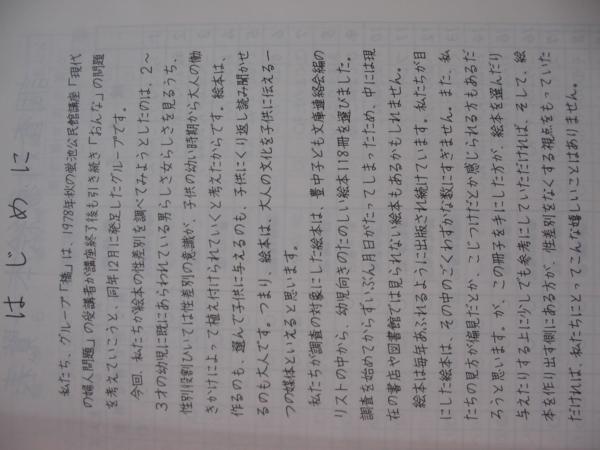 はじめに
私たち、グループ「橋」は、1978年秋の蛍池公民館講座「現代
の婦人問題」の受講者が講座終了後も引き続き「おんな」の問題
を考えていこうと、同年12月に発足したグループです。
今回、私たちが絵本の性差別を調べてみようとしたのは、2〜
3才の幼児に既にあらわれている男らしさ女らしさを見るうち、
性別役割ひいては性差別の意識が、子供の幼い時期から大人の働
きかけによって植え付けられていくと考えたからです。絵本は、
作るのも、選んで子供に与えるのも、子供にくり返し読み聞かせ
るのも大人です。つまり、絵本は、大人の文化を子供に伝える一
つの媒体といえると思います。
私たちが調査の対象にした絵本は、豊中子ども文庫連絡会編の
リストの中から、幼児向きのたのしい絵本118冊を選びました。
調査を始めてからずいぶん月日がたってしまったため、中には現
在の書店や図書館では見られない絵本もあるかもしれません。
絵本は毎年あふれるように出版され続けています。私たちが目
にした絵本は、その中のごくわずかな数にすぎません。また、私
たちの見方が偏見だとか、こじつけだとか感じられる方もあるだ
ろうと思います。が、この冊子を手にした方が、絵本を選んだり
与えたりする上に少しでも参考にしていただければ、そして、絵
本を作り出す側にある方が、性差別をなくする視点をもっていた
だければ、私たちにとってこんな嬉しいことはありません。